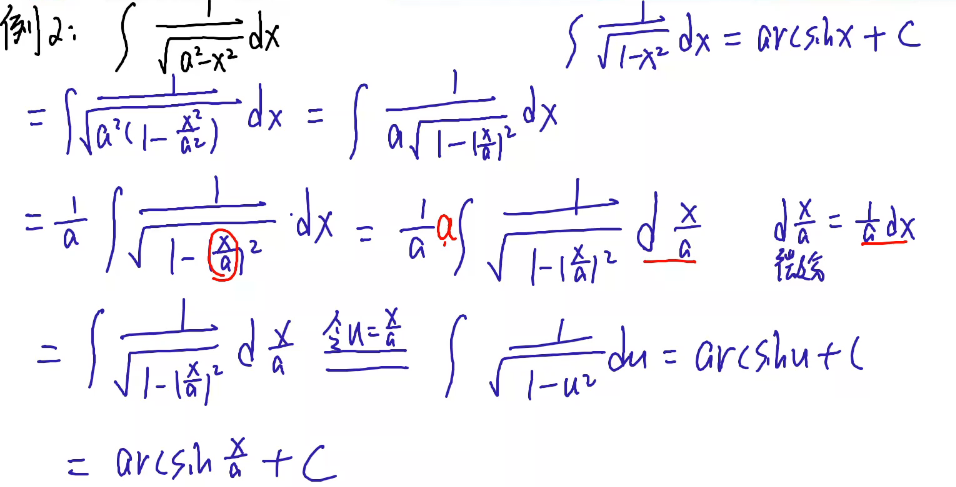 例2: ∫ 1/√(a²-x²) dx   ∫ 1/√(1-x²) dx = arcsinx + C
= ∫ 1/√(a²(1-x²/a²)) dx = ∫ 1/(a√(1-(x/a)²)) dx
= 1/a ∫ 1/√(1-(x/a)²) ·dx = 1/a a∫ 1/√(1-(x/a)²) d x/a   d x/a = 1/a dx
= ∫ 1/√(1-(x/a)²) d x/a 令u=x/a ∫ 1/√(1-u²) du = arcsinu + C
= arcsin x/a + C